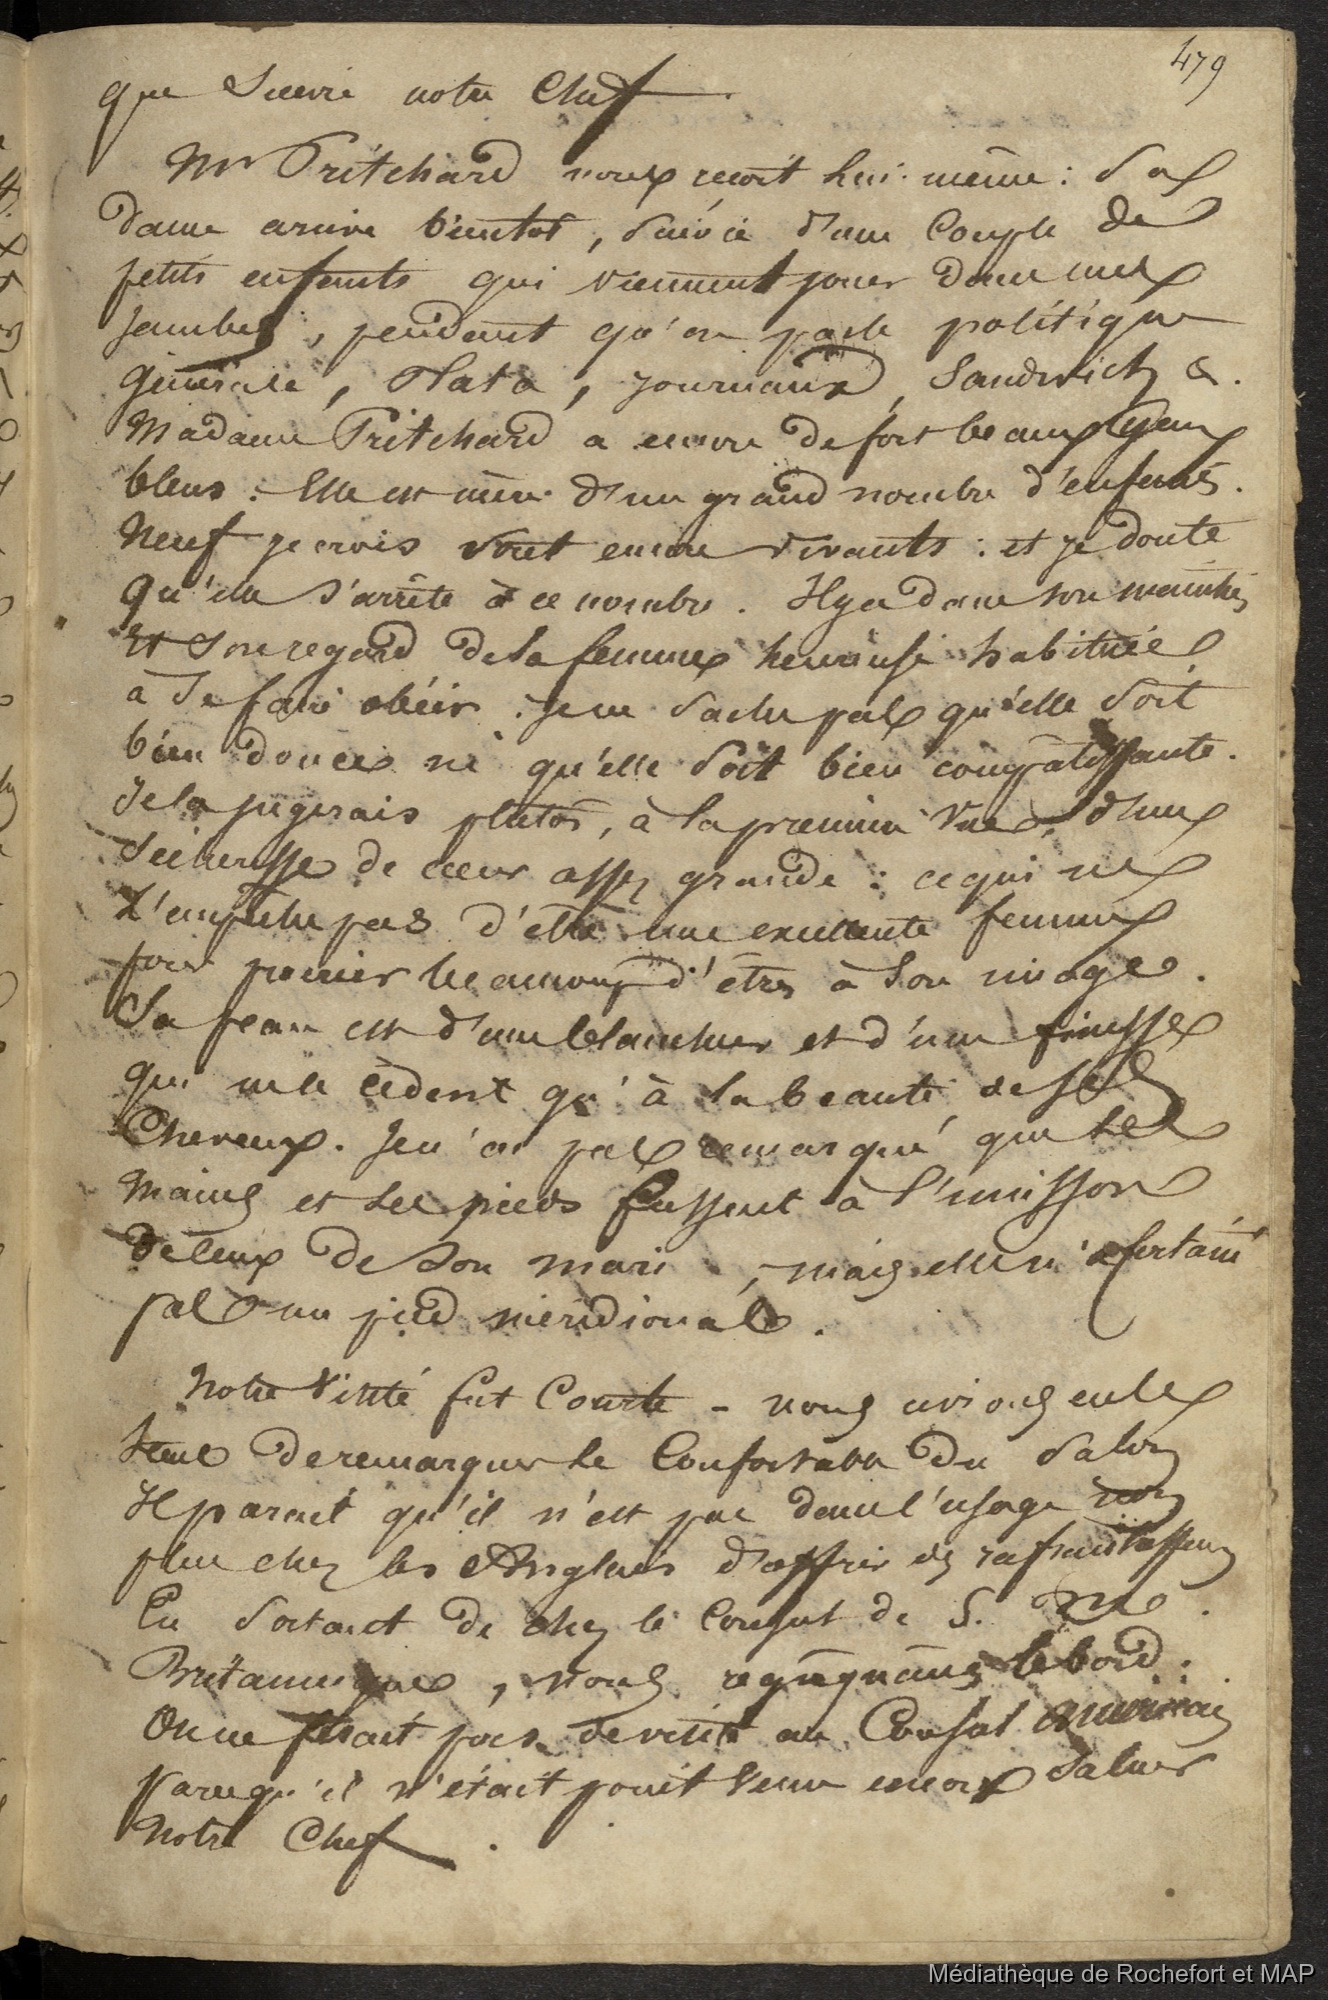 479
que suivre notre Chef.
Mr Pritchard nous reçoit lui-même : Sa
dame arrive bientôt, suivie d'une couple de
petits enfants qui viennent jouer dans mes
jambes, pendant qu'on parle politique
générale, Plata, journaux, Sandwich &.
Madame Pritchard a encore de fort beaux yeux
bleus. Elle est mère d'un grand nombre d'enfants.
Neuf je crois sont encore vivants : et je doute
qu'elle s'arrête à ce nombre. Il y a dans son maintien
et son regard de la femme heureuse habituée
à se faire obéir. Je ne sache pas qu'elle soit
bien douce ni qu'elle soit bien compatissante.
Je la jugerais plutôt, à la première vue, d'une
sécheresse de cœur assez grande : ce qui ne
l'empêche pas d'être une excellente femme
pour beaucoup d'êtres à son image.
Sa peau est d'une blancheur et d'une finesse
qui ne le cèdent qu'à la beauté de ses
Cheveux. Je n'ai pas remarqué que ses
mains et ses pieds fussent à l'unisson
de ceux de son mari, mais elle n'a certain
pas un pied méridional.
Notre visite fut courte - nous avions eu le
temps de remarquer le confortable du salon
Il parait qu'il n'est pas dans l'usage non
plus chez les Anglais d'offrir des rafraichissemens
En sortant de chez le consul de S. M.
Britannique, nous regagnâmes le bord :
On ne faisait pas de visite au Consul américain
parcequ'il n'était point venu encore saluer
notre Chef.
Médiathèque de Rochefort et MAP